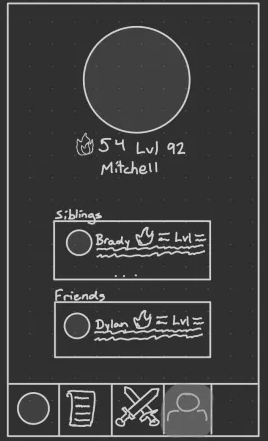 54 Lvl 92
Mitchell
Siblings
Brady = Lvl =
...
Friends
Dylan = Lvl =